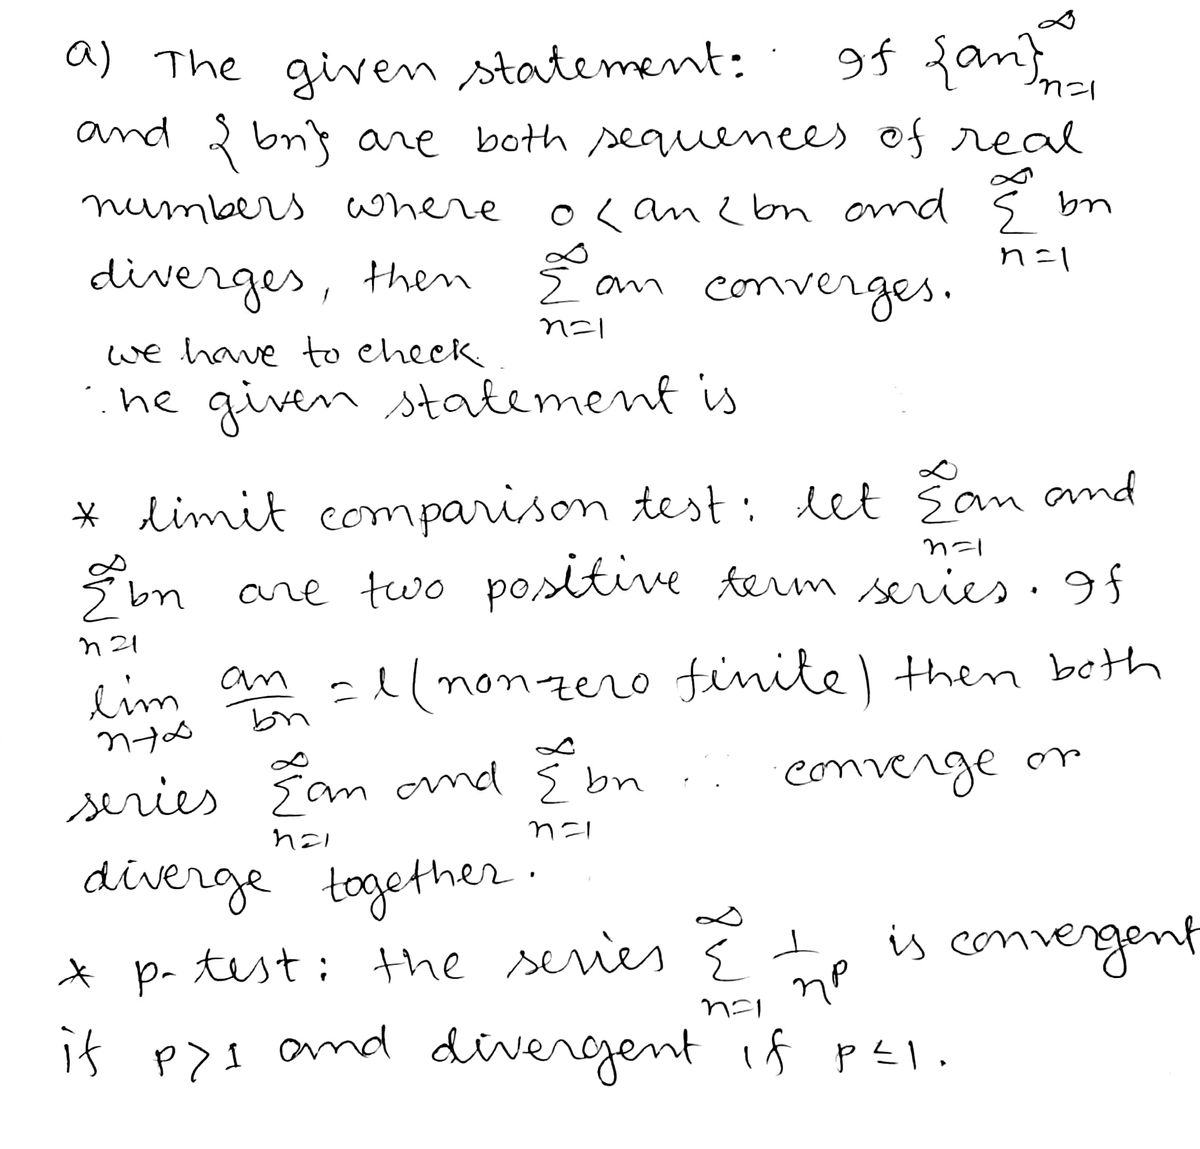 a) The given statement: If {an}∞n=1
and {bn} are both sequences of real
numbers where 0 < an < bn and ∞Σn=1 bn
diverges, then ∞Σn=1 an converges.
we have to check
he given statement is
* limit comparison test: let ∞Σn=1 an and
∞Σn=1 bn are two positive term series. If
lim n→∞ an/bn = l (non-zero finite) then both
series ∞Σn=1 an and ∞Σn=1 bn converge or
diverge together.
* p-test: the series ∞Σn=1 1/n^p is convergent
if p>1 and divergent if p≤1.